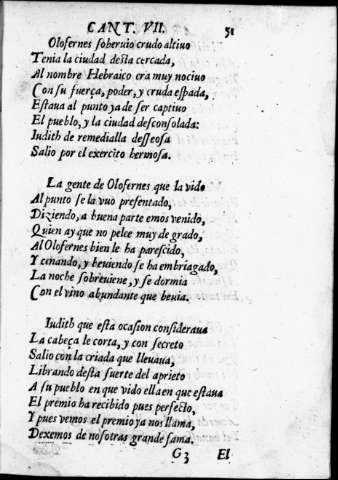 CANT. VII. 51
Olofernes soberuio crudo altiuo
Tenia la ciudad desta cercada,
Al nombre Hebraico era muy nociuo
Con su fuerça, poder, y cruda espada,
Estaua al punto ya de ser captiuo
El pueblo, y la ciudad desconsolada:
Iudith de remedialla desseosa
Salio por el exercito hermosa.
La gente de Olofernes que la vido
Al punto se la vuo presentado,
Diziendo, a buena parte emos venido,
Quien ay que no pelee muy de grado,
Al Olofernes bien le ha parescido,
Y cenando, y beuiendo se ha embriagado,
La noche sobreuiene, y se dormia
Con el vino abundante que beuia.
Iudith que esta ocasion consideraua
La cabeça le corta, y con secreto
Salio con la criada que lleuaua,
Librando desta suerte del aprieto
A su pueblo en que vido ella en que estaua
El premio ha recibido pues perfecto,
Y pues vemos el premio ya nos llama,
Dexemos de nosotras grande fama.
G3 El